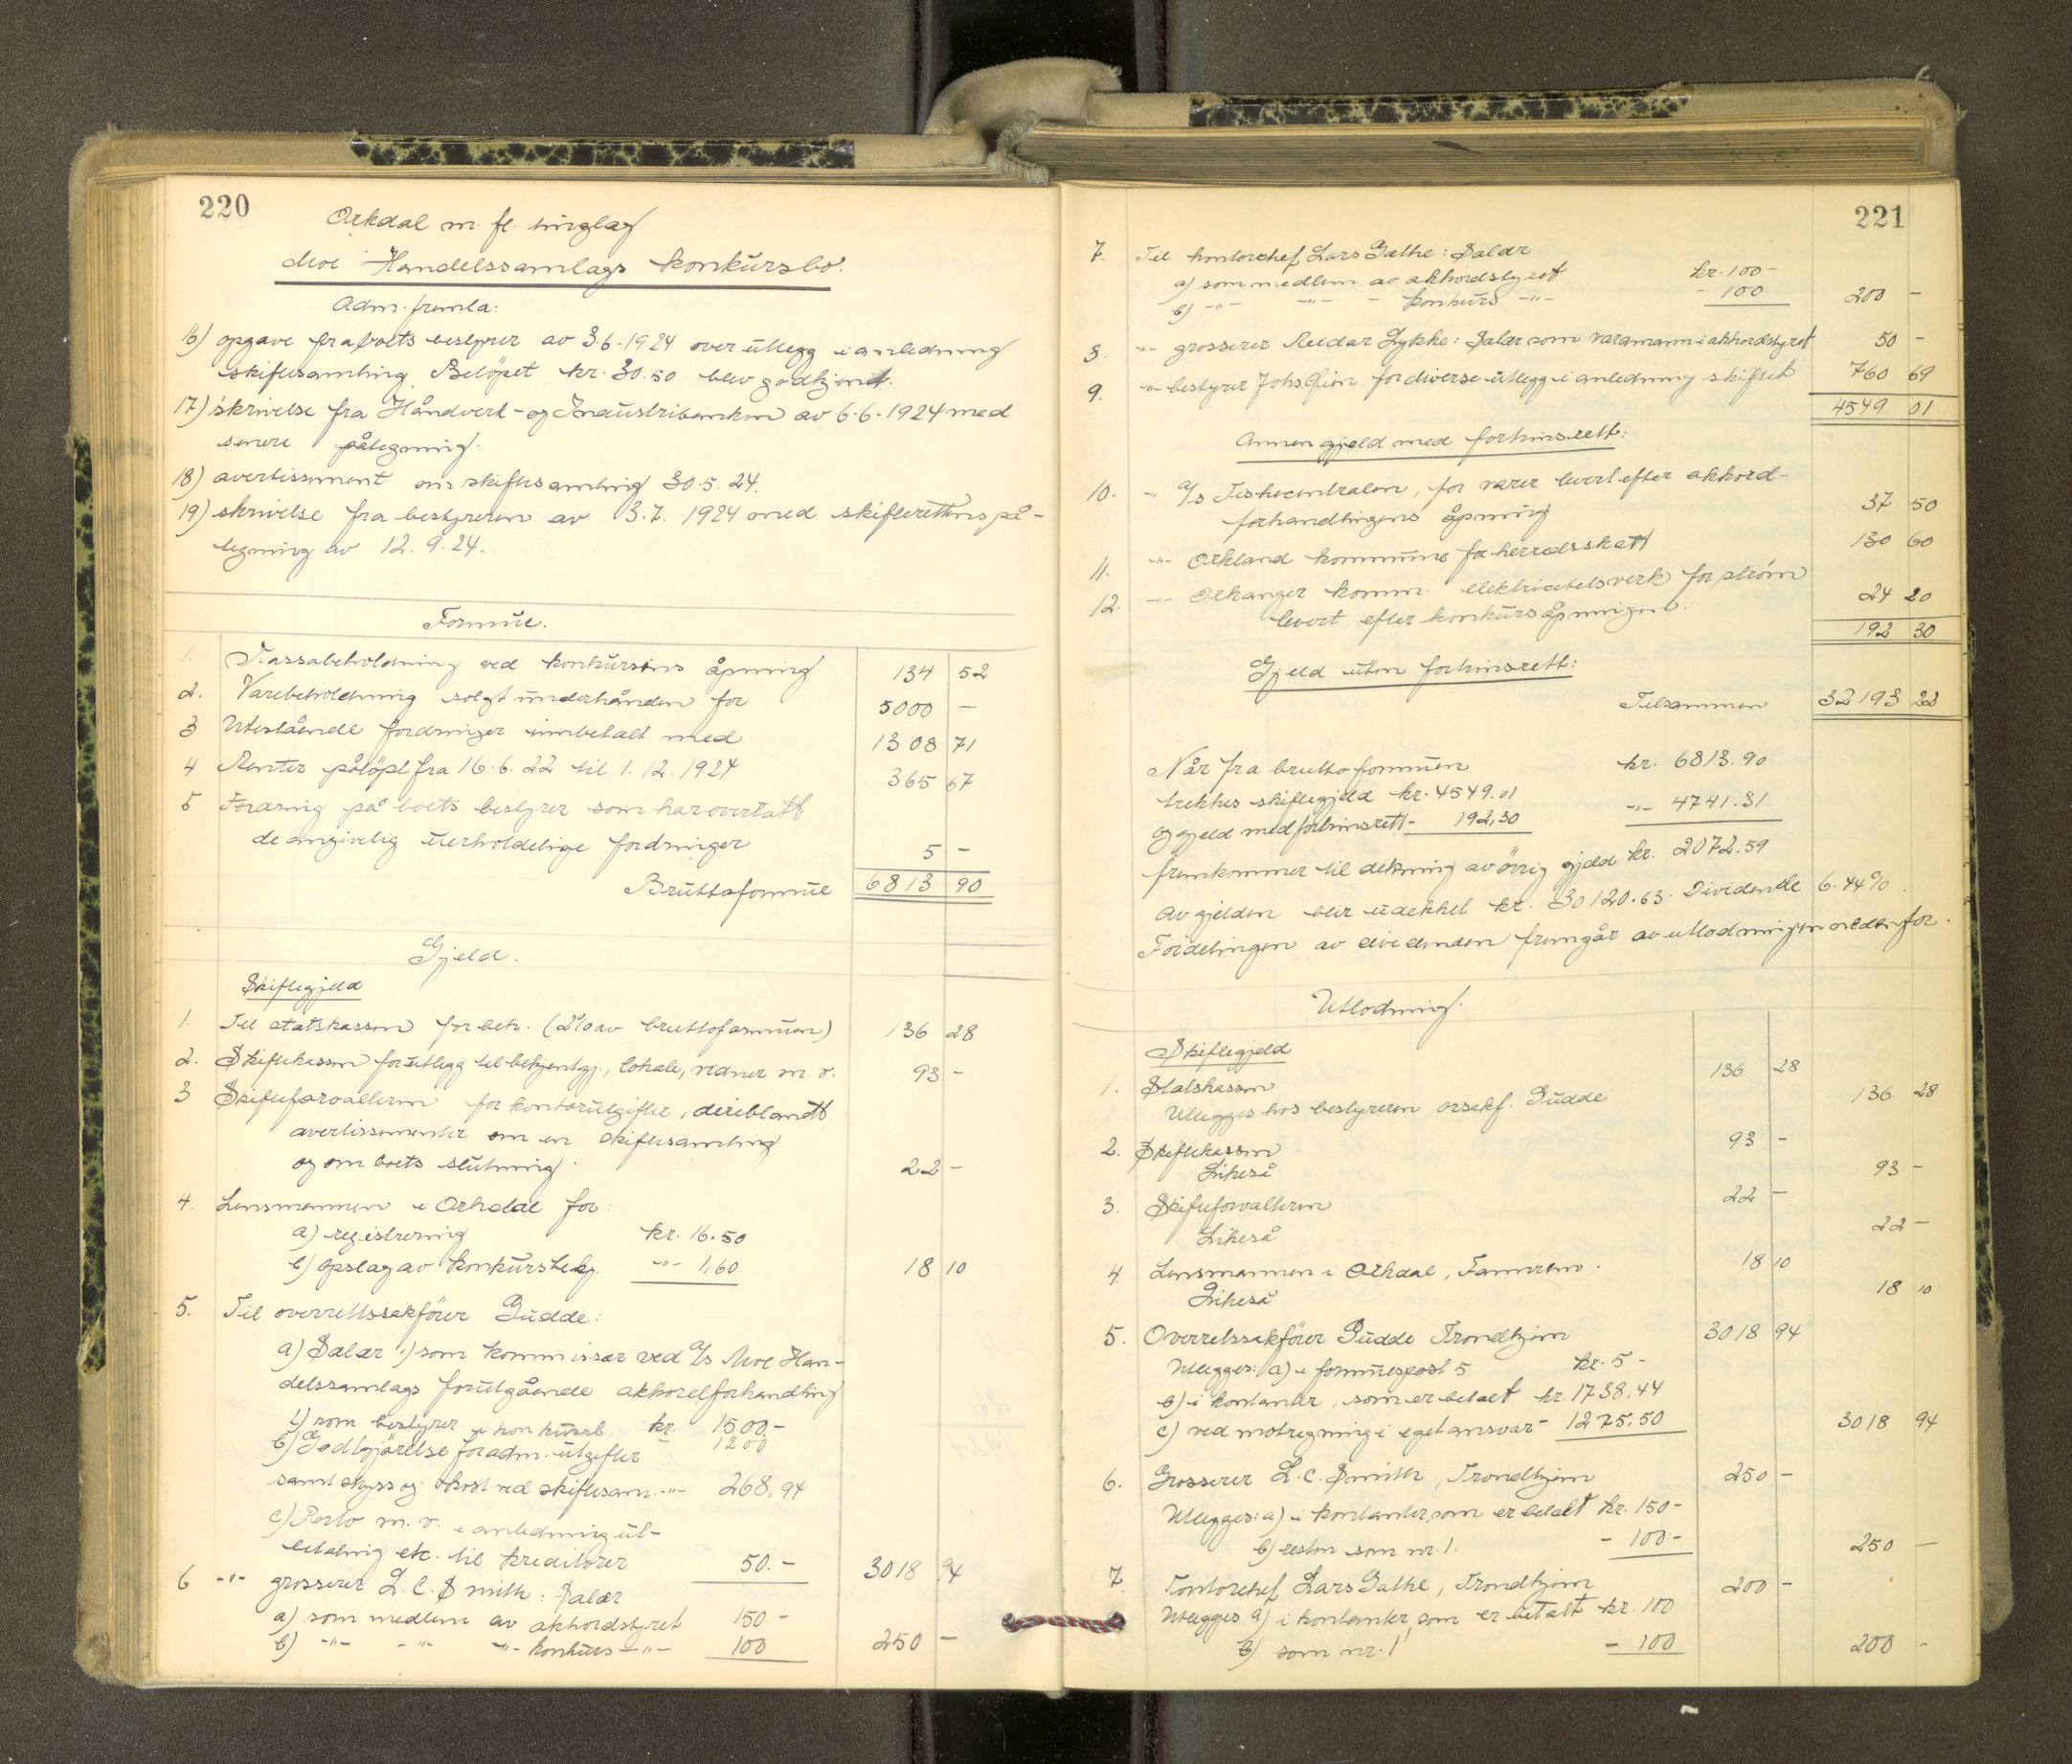 220
Orkdal m. fl. tinglag
Moe Handelssamlags konkursbo.
Adm. fremla:
16) opgave fra boets bestyrer av 3.6.1924 over utlegg i anledning
skiftesamling. Beløpet kr. 30.50 blev godkjent.
17) skrivelse fra Håndverk- og Industribanken av 6.6.1924 med
senere påtegning.
18) avertissement om skiftesamling 30.5.24.
19) skrivelse fra bestyreren av 3.7.1924 med skifterettens på-
tegning av 12.9.24.
Formue.
1. Kassabeholdning ved konkursens åpning 134 52
2. Varebeholdning solgt underhånden for 5000 —
3 Utestående fordringer innbetalt med 1308 71
4 Renter påløpt fra 16.6.22 til 1.12.1924 365 67
5 Fordring på boets bestyrer som har overtatt
de angivelig uerholdelige fordringer 5 —
Bruttoformue 6813 90
Gjeld.
Skiftegjeld
1. Til statskassen for beh. (2% av bruttoformuen) 136 28
2. Skiftekassen for utlegg til bekjentgj., lokale, vidner m. v. 93 —
3 Skifteforvalteren for kontorutgifter, deriblandt
avertissementer om en skiftesamling
og om boets slutning. 22 —
4. Lensmannen i Orkdal for:
a) registrering kr. 16.50
b) opslag av konkursbekj. -"- 1,60 18 10
5. Til overrettssakfører Gudde:
a) Salær 1) som kommissær ved A/s Moe Han-
delssamlags forutgående akkordforhandling
kr. 1500.-
2) som bestyrer i konkursb. - 1200
b) Godtgjørelse for adm. utgifter
samt skyss og kost ved skiftesam. -"- 268,94
c) Porto m. v. i anledning ut-
betaling etc. til kreditorer 50.- 3018 94
6 -"- grosserer L. C. Smith: Salær
a) som medlem av akkordstyret 150 -
b) -"- -"- -"- konkurs -"- 100 250 —
221
7. Til kontorchef Lars Gathe: Salær
a) som medlem av akkordstyret kr. 100 -
b) -"- -"- - konkurs -"- - 100 200 -
8. -"- grosserer Reidar Lykke: Salær som varamann i akkordstyret 50 -
9. -"- bestyrer Johs Gim for diverse utlegg i anledning skiftet 760 69
4549 01
Annen gjeld med fortrinsrett:
10. -"- A/s Fiskecentralen, for varer levert efter akkord-
forhandlingens åpning 37 50
11. -"- Orkland kommune for herredsskatt 130 60
12. -"- Orkanger komm. elektricitetsverk for strøm
levert efter konkursåpningen. 24 20
192 30
Gjeld uten fortrinsrett:
Tilsammen 32193 22
Når fra bruttoformuen kr. 6813.90
trekkes skiftegjeld kr. 4549.01
og gjeld med fortrinsrett - 192,30 -"- 4741.31
fremkommer til dekning av øvrig gjeld kr. 2072.59
Av gjelden blir udekket kr. 30120.63. Dividende 6.44%.
Fordelingen av dividenden fremgår av utlodningen nedenfor.
Utlodning.
Skiftegjeld
1. Statskassen 136 28
Utlegges hos bestyreren orsakf. Gudde 136 28
2. Skiftekassen 93 -
Likeså 93 -
3. Skifteforvalteren 22 -
Likeså 22 -
4. Lensmannen i Orkdal, Fannrem. 18 10
Likeså 18 10
5. Overretssakfører Gudde Trondhjem 3018 94
Utlegges: a) i formuespost 5 kr. 5 -
b) i kontanter, som er betalt kr. 1738,44
c) ved motregning i eget ansvar - 1275.50 3018 94
6. Grosserer L. C. Smith, Trondhjem 250 -
Utlegges: a) i kontanter, som er betalt kr. 150 -
b) resten som nr. 1. - 100 - 250 —
7. Kontorchef Lars Gathe, Trondhjem 200 -
Utlegges a) i kontanter som er betalt kr. 100
b) som nr. 1 - 100 200 -